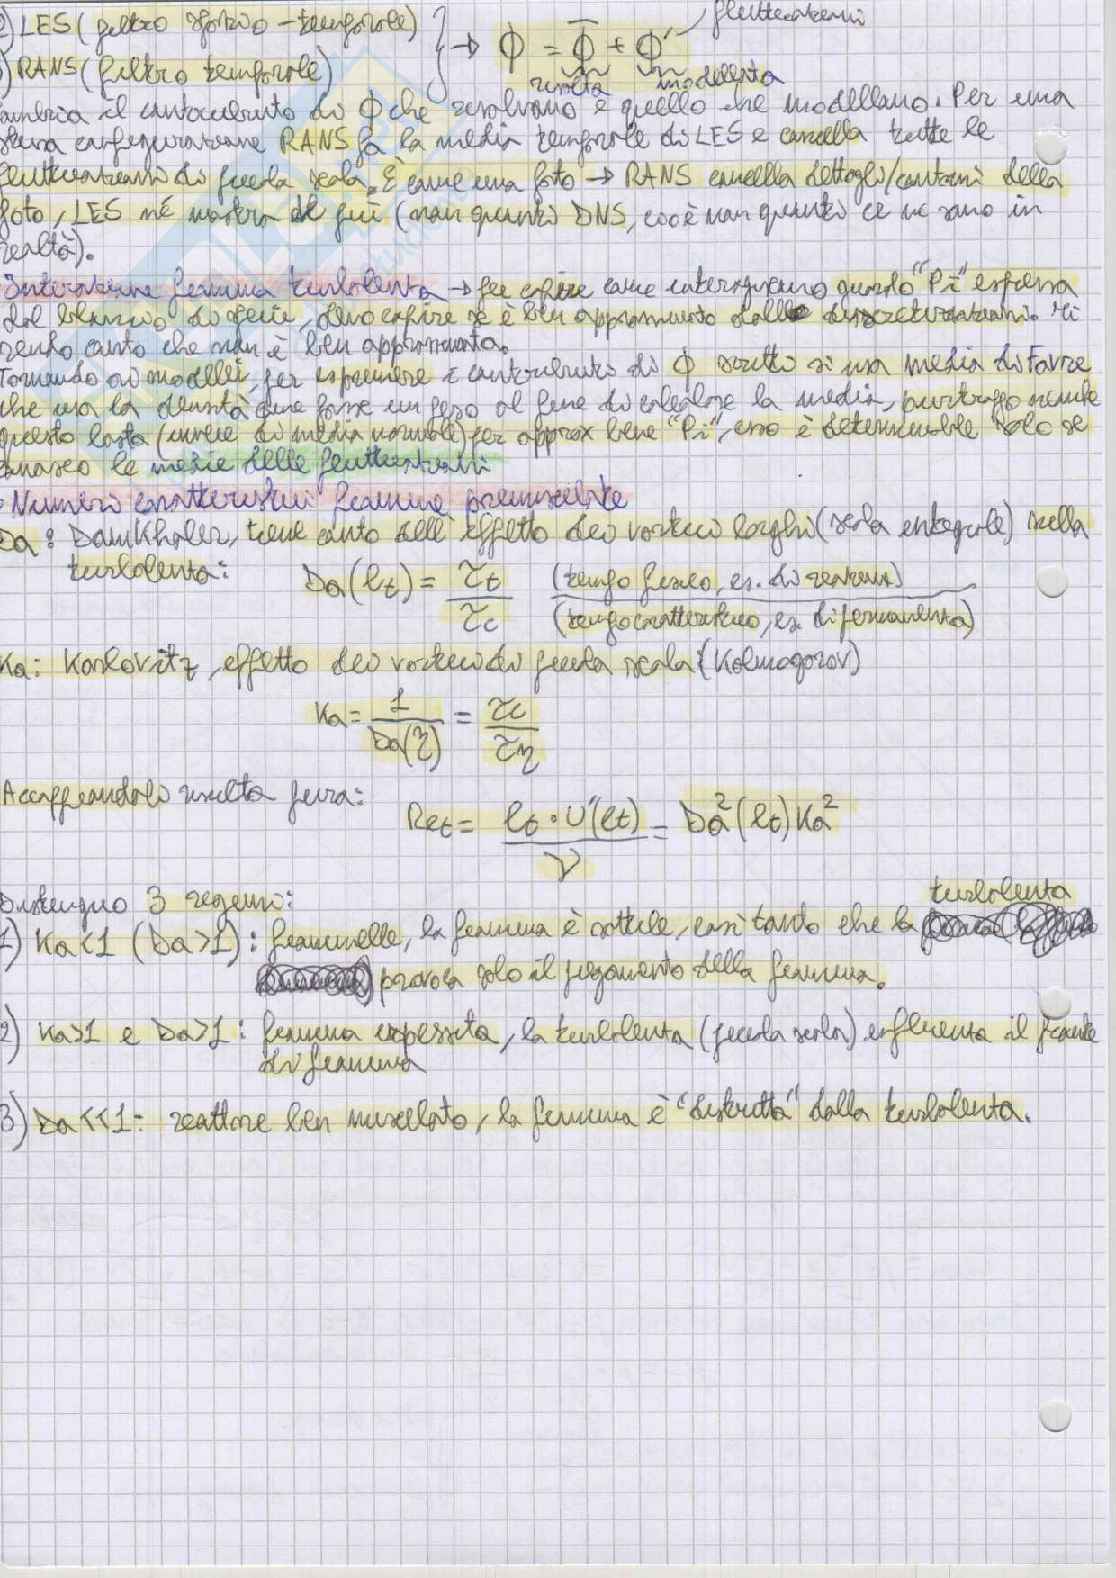 2) LES (filtro spazio-temporale) } → Φ = Φ̅ + Φ' fluttuazioni
) RANS (filtro temporale) risolta modellata
cambia il contributo di Φ che risolviamo e quello che modelliamo. Per una
stessa configurazione RANS fa la media temporale di LES e cancella tutte le
fluttuazioni di piccola scala. È come una foto → RANS cancella dettagli/contorni della
foto, LES né mostra di più (non quanti DNS, cioè non quanti ce ne sono in
realtà).
Interazione fiamma turbolenta → per capire come interagiscono quando "ṗi" espressa
dal bilancio di specie, devo capire se è ben approssimato dalle discretizzazioni. Mi
rendo conto che non è ben approssimata.
Tornando ai modelli, per esprimere i contributi di Φ scritti si usa media di Favre
che usa la densità come fosse un peso al fine di calcolare la media, purtroppo neanche
questo basta (invece di media normale) per approx bene "ṗi", esso è determinabile solo se
conosco le medie delle fluttuazioni
· Numeri caratteristici fiamme premiscelate
Da: DamKholer, tiene conto dell'effetto dei vortici larghi (scala integrale) nella
turbolenta: Da(lt) = τt / τc (tempo fisico, es. di residenza) / (tempo caratteristico, es di fiamma)
Ka: Karlovitz, effetto dei vortici di piccola scala (Kolmogorov)
Ka = 1 / Da(η) = τc / τη
Accoppiandoli risulta fuori:
Ret = lt · U'(lt) / ν = Da²(lt) Ka²
Distinguo 3 regimi:
1) Ka<1 (Da>1): fiammelle, la fiamma è sottile, così tanto che la turbolenta
provoca solo il piegamento della fiamma.
2) Ka>1 e Da>1: fiamma ispessita, la turbolenta (piccola scala) influenza il fronte
di fiamma
3) Da<<1: reattore ben miscelato, la fiamma è "distrutta" dalla turbolenta.